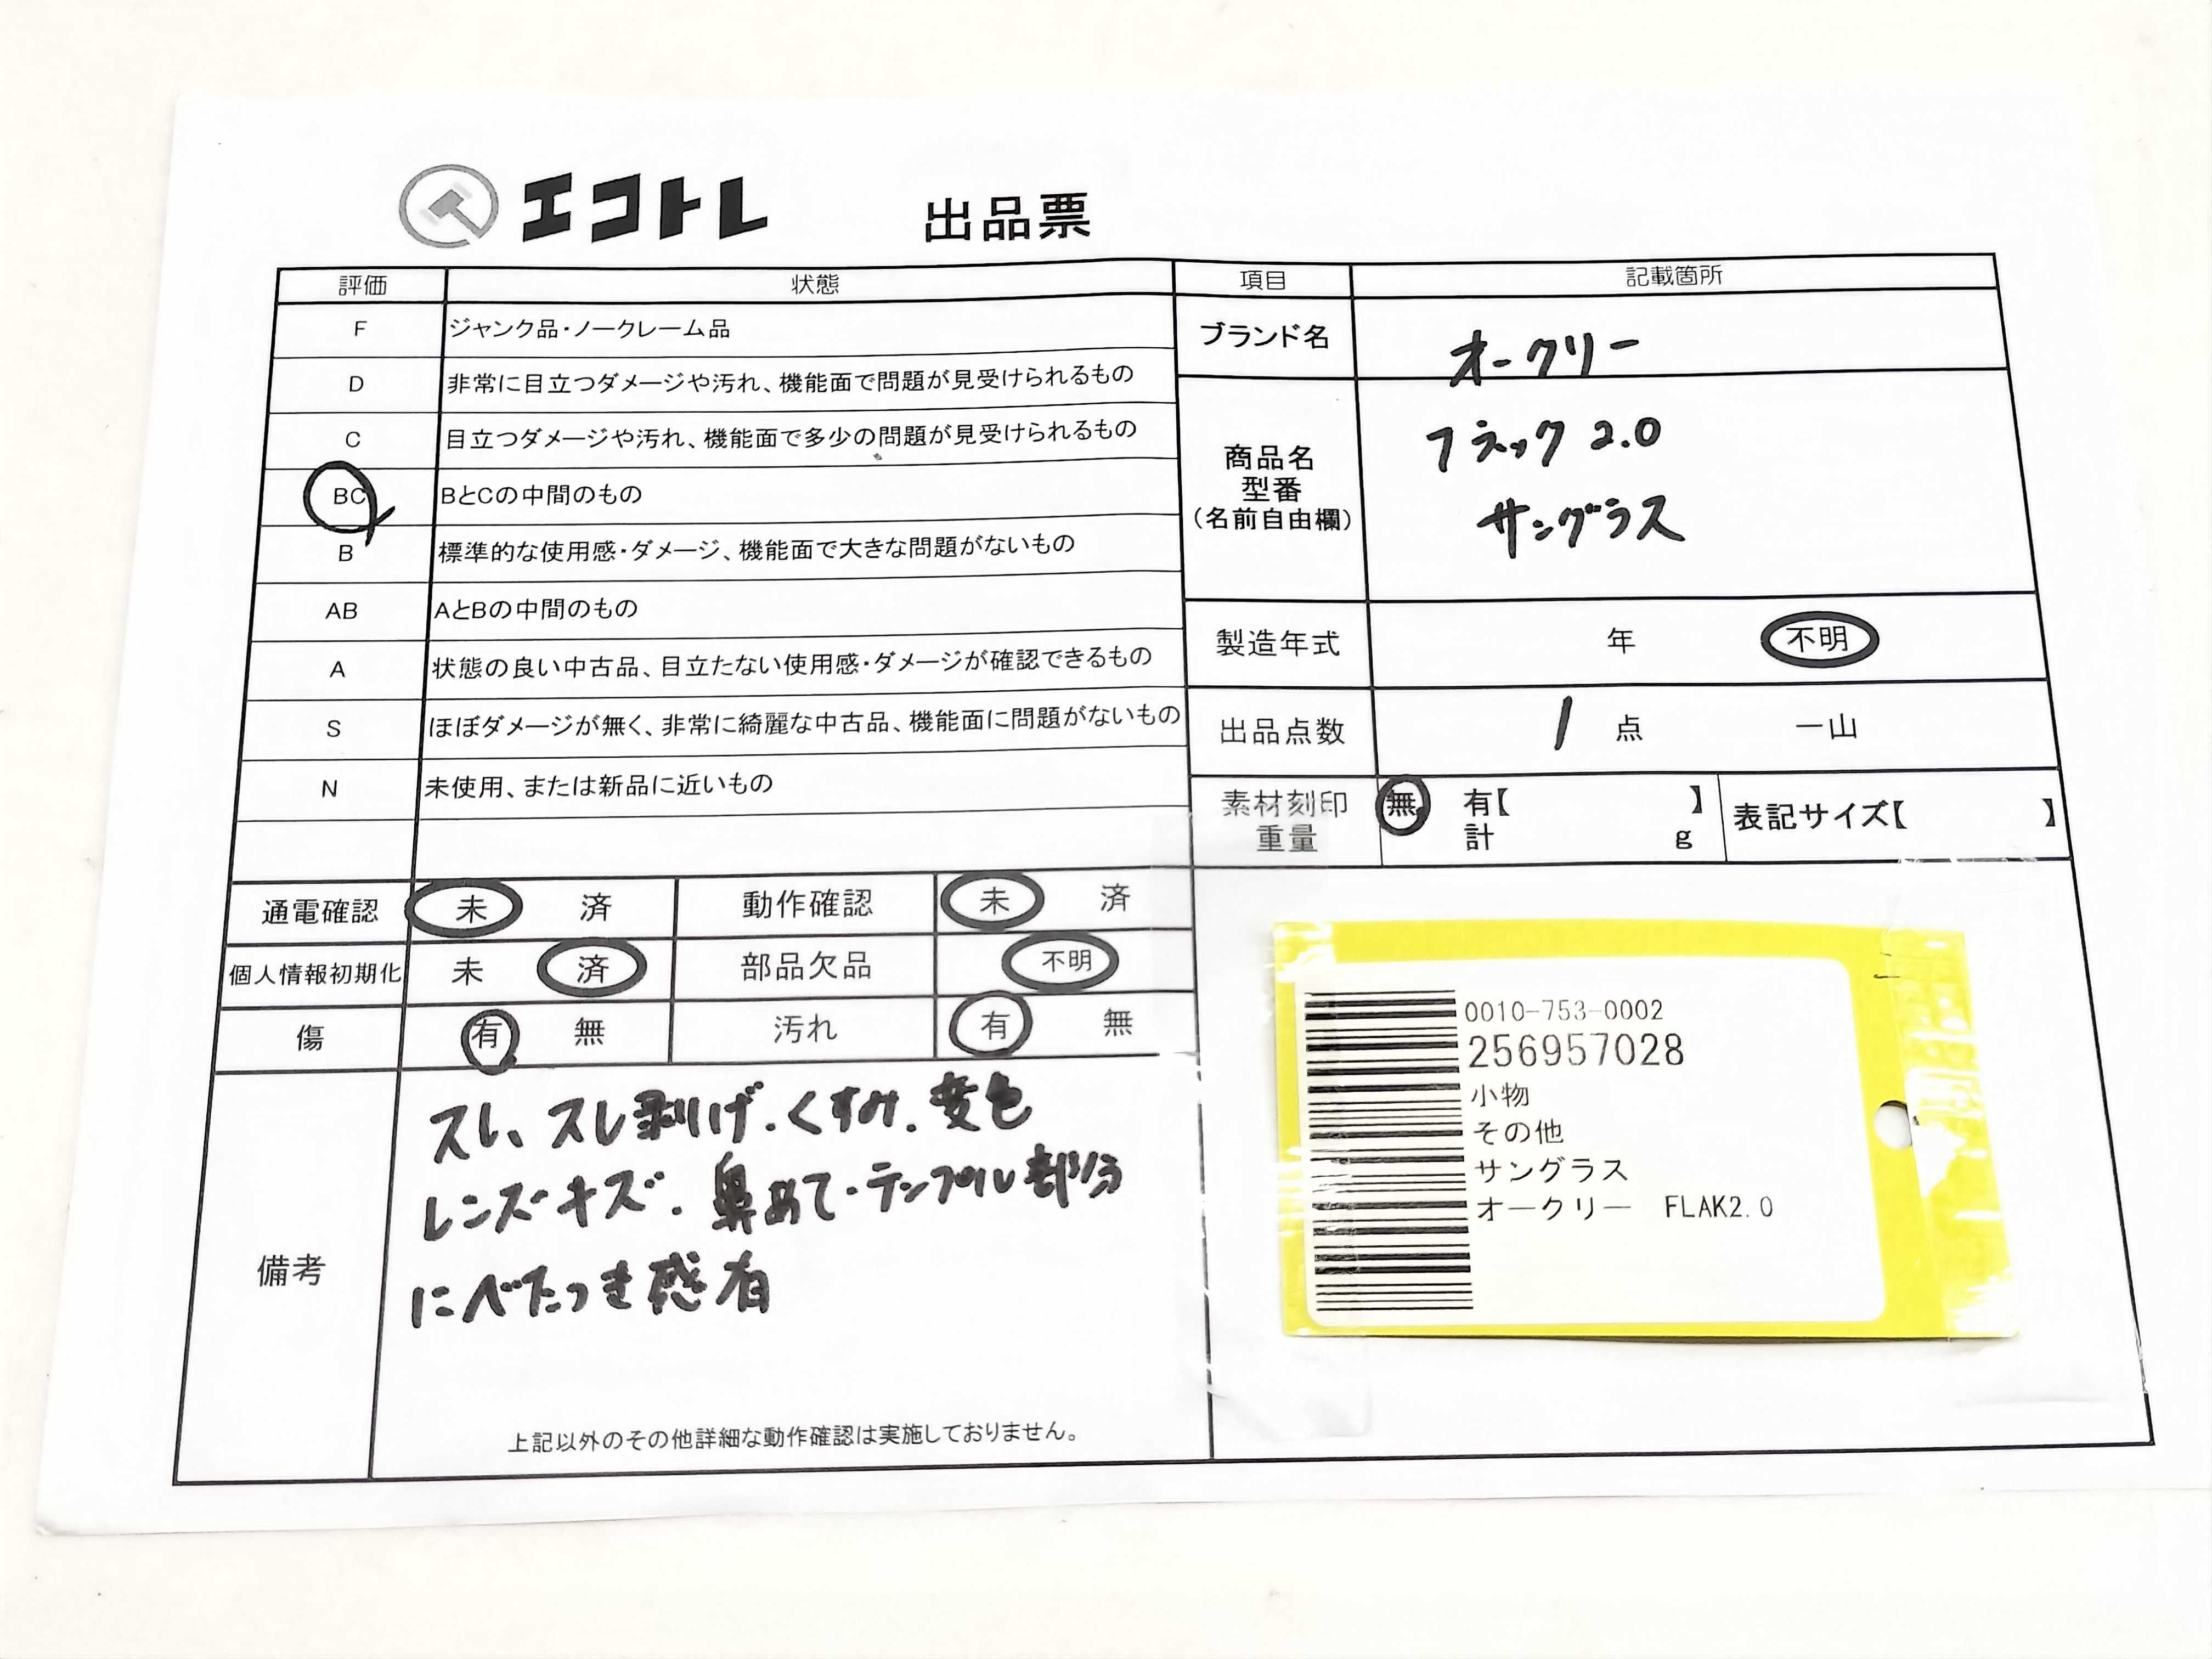 エコトレ 出品票
評価 状態 項目 記載箇所
F ジャンク品・ノークレーム品
D 非常に目立つダメージや汚れ、機能面で問題が見受けられるもの
C 目立つダメージや汚れ、機能面で多少の問題が見受けられるもの
BC BとCの中間のもの
B 標準的な使用感・ダメージ、機能面で大きな問題がないもの
AB AとBの中間のもの
A 状態の良い中古品、目立たない使用感・ダメージが確認できるもの
S ほぼダメージが無く、非常に綺麗な中古品、機能面に問題がないもの
N 未使用、または新品に近いもの
ブランド名 オークリー
商品名
型番
(名前自由欄)
フラック 2.0
サングラス
製造年式 年 不明
出品点数 1 点 一山
素材刻印 無 有【 】 表記サイズ【 】
重量 計 g
通電確認 未 済 動作確認 未 済
個人情報初期化 未 済 部品欠品 不明
傷 有 無 汚れ 有 無
備考
スレ、スレ剥げ.くすみ.変色
レンズキズ.鼻あて・テンプル部分
にべたつき感有
上記以外のその他詳細な動作確認は実施しておりません。
0010-753-0002
256957028
小物
その他
サングラス
オークリー FLAK2.0